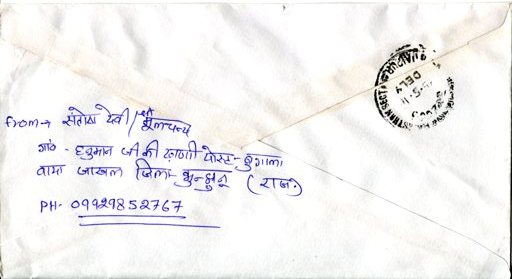 From → संतोष देवी / श्री मूलचन्द
गांव - हनुमान जी की ढाणी पोस्ट - बुगाला
वाया जाखल जिला - झुन्झुनू (राज॰)
PH- 09929852767
DELY